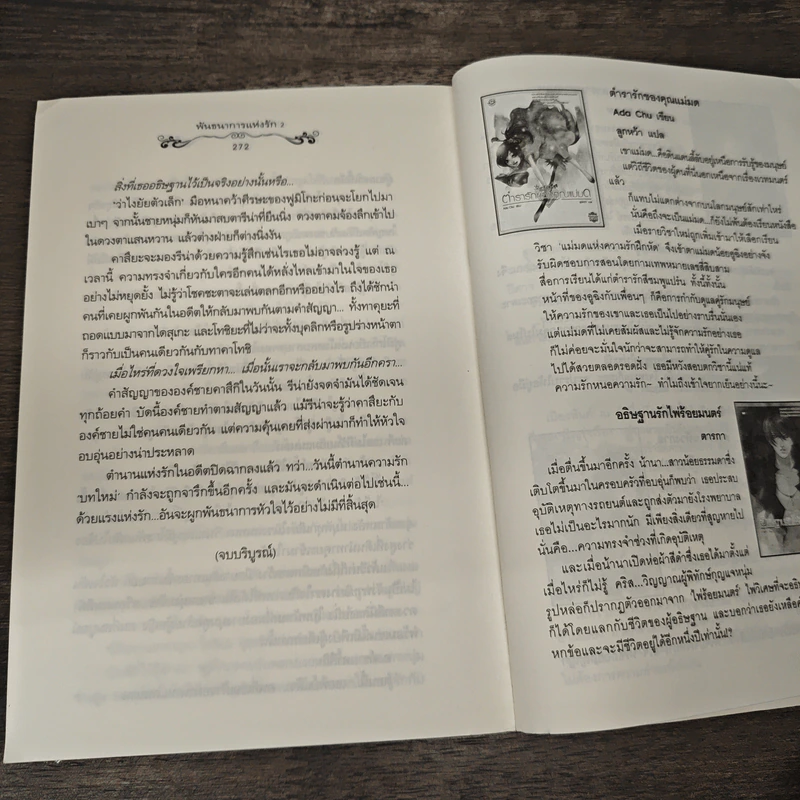 พันธนาการแห่งรัก 2
272
สิ่งที่เธออธิษฐานไว้เป็นจริงอย่างนั้นหรือ...
“ว่าไงยัยตัวเล็ก” มือหนาคว้าศีรษะของฟูมิโกะก่อนจะโยกไปมา
เบาๆ จากนั้นชายหนุ่มก็หันมาสบตารีน่าที่ยืนนิ่ง ดวงตาคมจ้องลึกเข้าไป
ในดวงตาแสนหวาน แล้วต่างฝ่ายก็ต่างนิ่งงัน
คาสึยะจะมองรีน่าด้วยความรู้สึกเช่นไรเธอไม่อาจล่วงรู้ แต่ ณ
เวลานี้ ความทรงจำเกี่ยวกับใครอีกคนได้หลั่งไหลเข้ามาในใจของเธอ
อย่างไม่หยุดยั้ง ไม่รู้ว่าโชคชะตาจะเล่นตลกอีกหรืออย่างไร ถึงได้ชักนำ
คนที่เคยผูกพันกันในอดีตให้กลับมาพบกันตามคำสัญญา... ทั้งทาคุยะที่
ถอดแบบมาจากไดสุเกะ และโทชิยะที่ไม่ว่าจะทั้งบุคลิกหรือรูปร่างหน้าตา
ก็ราวกับเป็นคนเดียวกันกับทาคาโทชิ
เมื่อไหร่ที่ดวงใจเพรียกหา... เมื่อนั้นเราจะกลับมาพบกันอีกครา...
คำสัญญาขององค์ชายคาสึกิในวันนั้น รีน่ายังจดจำมันได้ชัดเจน
ทุกถ้อยคำ บัดนี้องค์ชายทำตามสัญญาแล้ว แม้รีน่าจะรู้ว่าคาสึยะกับ
องค์ชายไม่ใช่คนคนเดียวกัน แต่ความคุ้นเคยที่ส่งผ่านมาก็ทำให้หัวใจ
อบอุ่นอย่างน่าประหลาด
ตำนานแห่งรักในอดีตปิดฉากลงแล้ว ทว่า...วันนี้ตำนานความรัก
‘บทใหม่’ กำลังจะถูกจารึกขึ้นอีกครั้ง และมันจะดำเนินต่อไปเช่นนี้...
ด้วยแรงแห่งรัก...อันจะผูกพันธนาการหัวใจไว้อย่างไม่มีที่สิ้นสุด
(จบบริบูรณ์)
ตำรารักของคุณแม่มด
Ada Chu เขียน
ลูกหว้า แปล
เขาแม่มด...คือดินแดนลี้ลับอยู่เหนือการรับรู้ของมนุษย์
แต่วิถีชีวิตของผู้คนที่นี่นอกเหนือจากเรื่องเวทมนตร์
แล้ว
ก็แทบไม่แตกต่างจากบนโลกมนุษย์สักเท่าไหร่
นั่นคือถึงจะเป็นแม่มด...ก็ยังไม่พ้นต้องเรียนหนังสือ
เมื่อรายวิชาใหม่ถูกเพิ่มเข้ามาให้เลือกเรียน
วิชา ‘แม่มดแห่งความรักฝึกหัด’ จึงเข้าตาแม่มดน้อยอูฉิงอย่างจัง
รับผิดชอบการสอนโดยกามเทพหมายเลขสี่สิบสาม
สื่อการเรียนได้แก่ตำรารักสีชมพูแปร๋น ทั้งนี้ทั้งนั้น
หน้าที่ของอูฉิงกับเพื่อนๆ ก็คือการกำกับดูแลคู่รักมนุษย์
ให้ความรักของเขาและเธอเป็นไปอย่างราบรื่นนั่นเอง
แต่แม่มดที่ไม่เคยสัมผัสและไม่รู้จักความรักอย่างเธอ
ก็ไม่ค่อยจะมั่นใจนักว่าจะสามารถทำให้คู่รักในความดูแล
ไปได้สวยตลอดรอดฝั่ง เธอมีหวังสอบตกวิชานี้แน่ๆ
ความรักหนอความรัก~ ทำไมถึงเข้าใจยากเย็นอย่างนี้นะ~
อธิษฐานรักไพ่ร้อยมนตร์
ดารกา
เมื่อตื่นขึ้นมาอีกครั้ง น้านา...สาวน้อยธรรมดาซึ่ง
เติบโตขึ้นมาในครอบครัวที่อบอุ่นก็พบว่า เธอประสบ
อุบัติเหตุทางรถยนต์และถูกส่งตัวมายังโรงพยาบาล
เธอไม่เป็นอะไรมากนัก มีเพียงสิ่งเดียวที่สูญหายไป
นั่นคือ...ความทรงจำช่วงที่เกิดอุบัติเหตุ
และเมื่อน้านาเปิดห่อผ้าสีดำซึ่งเธอได้มาตั้งแต่
เมื่อไหร่ก็ไม่รู้ คริส...วิญญาณผู้พิทักษ์กุญแจหนุ่ม
รูปหล่อก็ปรากฏตัวออกมาจาก ‘ไพ่ร้อยมนตร์’ ไพ่วิเศษที่จะอธิษ
ก็ได้โดยแลกกับชีวิตของผู้อธิษฐาน และบอกว่าเธอยังเหลือคำ
หกข้อและจะมีชีวิตอยู่ได้อีกหนึ่งปีเท่านั้น!?